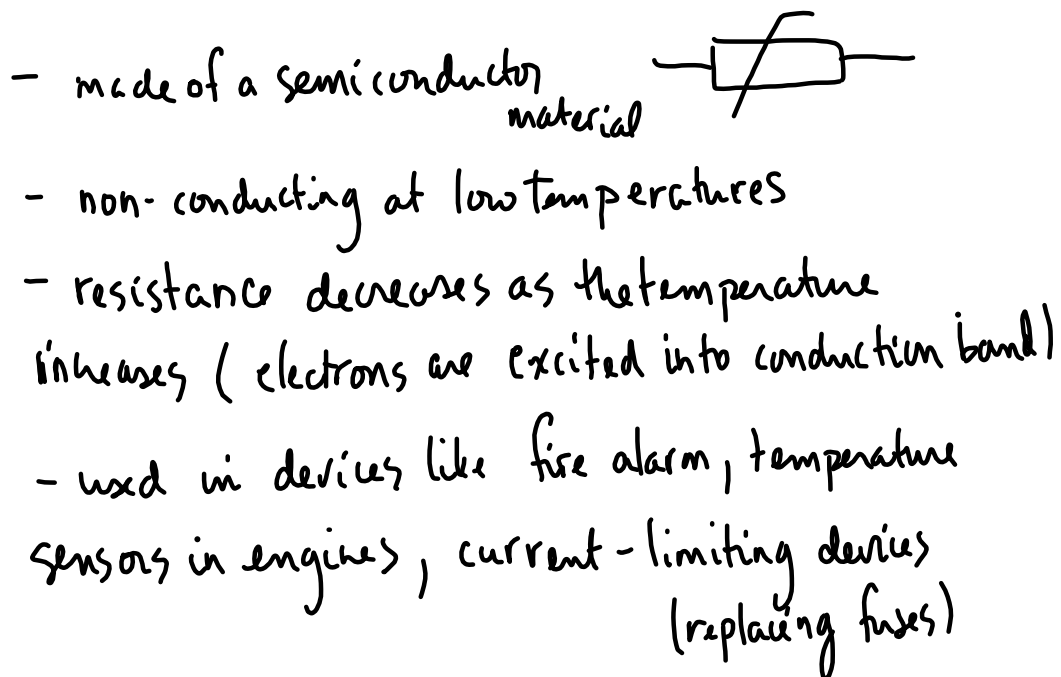 - made of a semiconductor
material
- non-conducting at low temperatures
- resistance decreases as the temperature
increases (electrons are excited into conduction band)
- used in devices like fire alarm, temperature
sensors in engines, current-limiting devices
(replacing fuses)